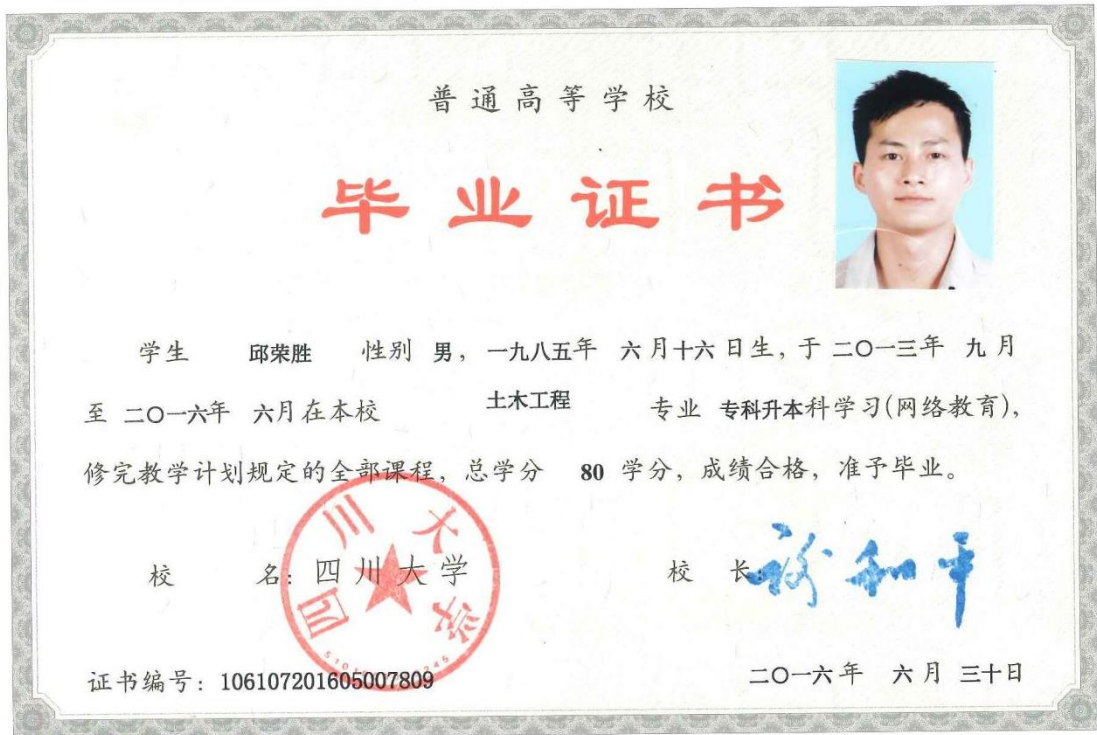 普通高等学校
毕业证书
学生 邱荣胜 性别 男，一九八五年 六月十六日生，于二〇一三年 九月
至 二〇一六年 六月在本校 土木工程 专业 专科升本科学习(网络教育)，
修完教学计划规定的全部课程，总学分 80 学分，成绩合格，准予毕业。
校 名：四川大学 校 长：谢和平
四川大学
证书编号：106107201605007809 二〇一六年 六月 三十日